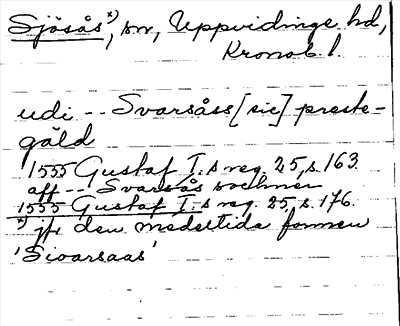 Sjösås*), sn, Uppvidinge hd,
Kronob. l.
udi -- Svarsåss [sic] preste-
gäld
1555 Gustaf I:s reg. 25, s. 163.
aff -- Svarsås sochnen
1555 Gustaf I:s reg. 25, s. 176.
*) jfr den medeltida formen
'Sioarsaas'